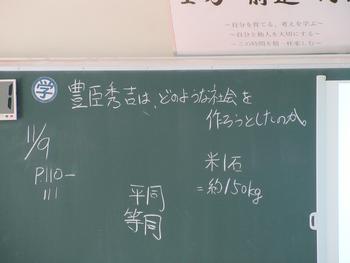 ～自分を育てる、考えを学ぶ～
～自分と他人を大切にする～
1
学 豊臣秀吉は、どのような社会を
作ろうとしたのか。
11/9
P.110-
111
米1石
=約150kg
平同
等同